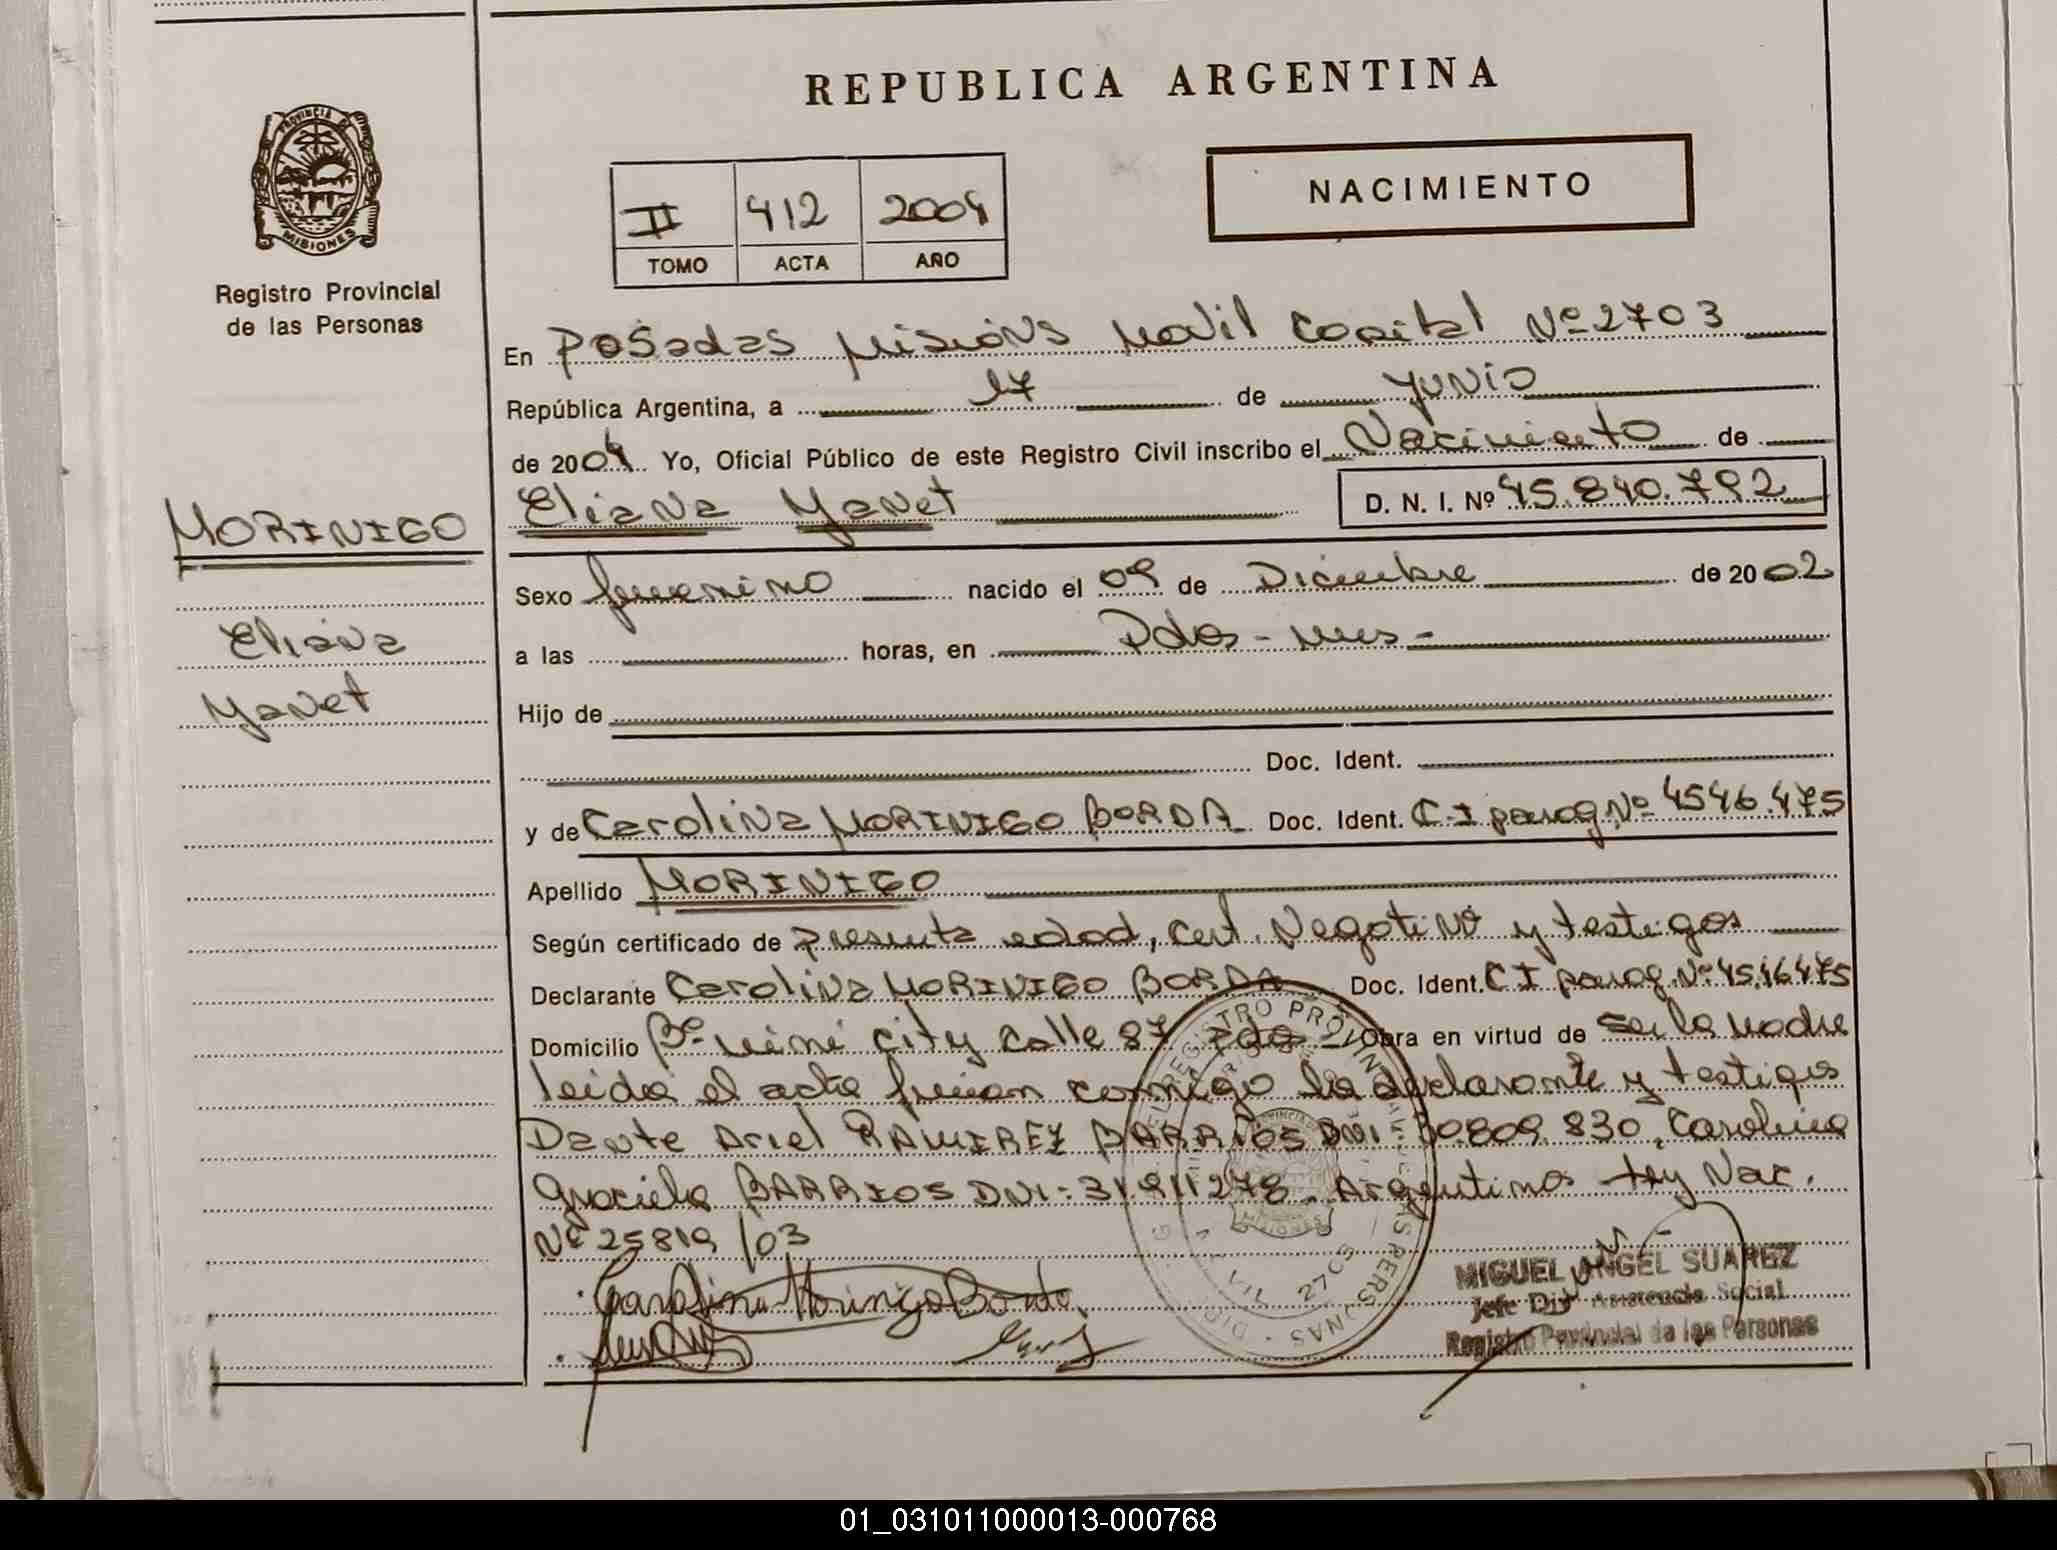 REPUBLICA ARGENTINA
PROVINCIA DE
MISIONES
Registro Provincial
de las Personas
NACIMIENTO
II 412 2004
TOMO ACTA AÑO
En Posadas Misiones Movil Capital Nº 2703
República Argentina, a 17 de Junio
de 2004 Yo, Oficial Público de este Registro Civil inscribo el Nacimiento de
Eliana Yanet D. N. I. Nº 45.840.792
MORINIGO
Eliana
Yanet
Sexo femenino nacido el 09 de Diciembre de 20 02
a las horas, en Pdas - Mnes -
Hijo de
Doc. Ident.
y de Carolina MORINIGO BORDA Doc. Ident. C.I parag. Nº 4546.475
Apellido MORINIGO
Según certificado de presunta edad, Cert. Negativo y testigos
Declarante Carolina MORINIGO BORDA Doc. Ident. C I parag. Nº 4546475
Domicilio Bº mini city Calle 87 Pdas - Obra en virtud de ser la Madre
leida el acta firman conmigo la declarante y testigos
Dante Ariel RAMIREZ BARRIOS DNI. 30.809.830, Carolina
Graciela BARRIOS DNI- 31.911278. Argentinos Ley Nac.
Nº 25819 /03
Carolina Morinigo Borda
MIGUEL ANGEL SUAREZ
Jefe Dir Asistencia Social
Registro Provincial de las Personas
01_031011000013-000768